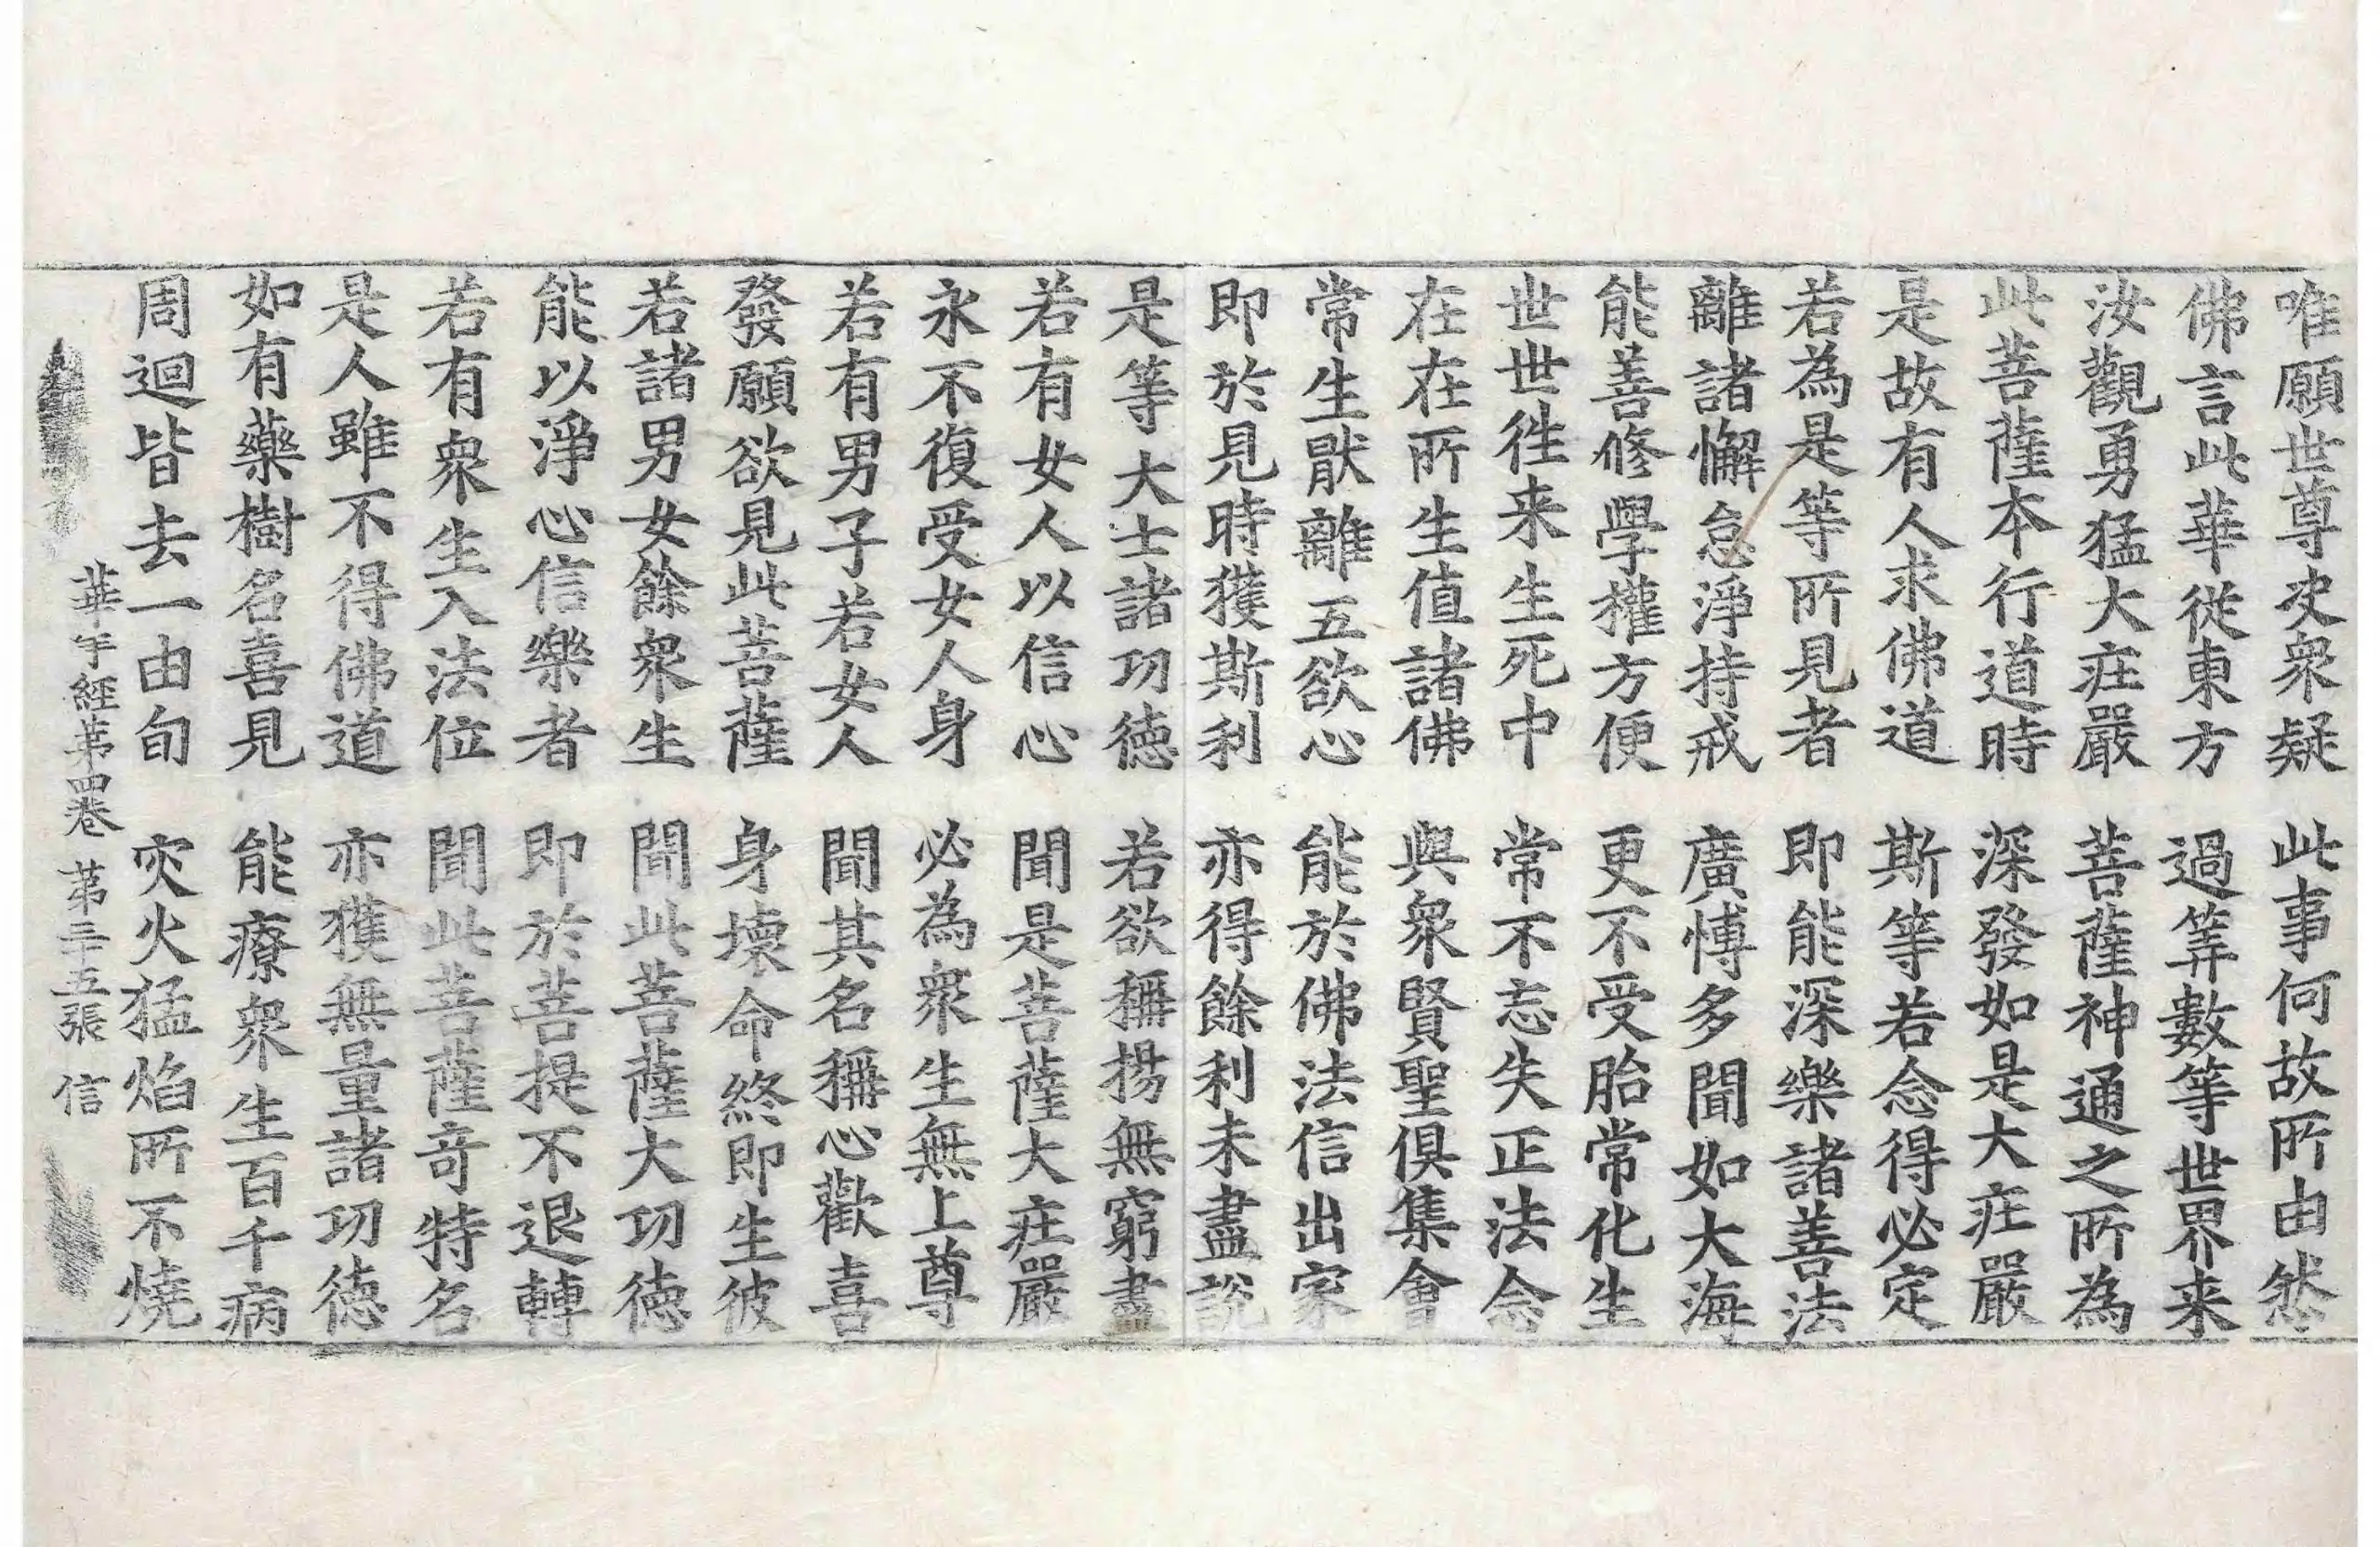 唯願世尊決衆疑　此事何故所由然
佛言此華從東方　過筭數等世界来
汝觀勇猛大庄嚴　菩薩神通之所為
此菩薩本行道時　深發如是大庄嚴
是故有人求佛道　斯等若念得必定
若為是等所見者　即能深樂諸善法
離諸懈怠淨持戒　廣愽多聞如大海
能善修學權方便　更不受胎常化生
世世徃来生死中　常不忘失正法念
在在所生值諸佛　與衆賢聖俱集會
常生猒離五欲心　能於佛法信出家
即於見時獲斯利　亦得餘利未盡説
是等大士諸功德　若欲稱揚無窮盡
若有女人以信心　聞是菩薩大庄嚴
永不復受女人身　必為衆生無上尊
若有男子若女人　聞其名稱心歡喜
發願欲見此菩薩　身壞命終即生彼
若諸男女餘衆生　聞此菩薩大功德
能以淨心信樂者　即於菩提不退轉
若有衆生入法位　聞此菩薩奇特名
是人雖不得佛道　亦獲無量諸功德
如有藥樹名喜見　能療衆生百千病
周迴皆去一由旬　灾火猛焰所不燒
華手經第四卷　第三十五張　信